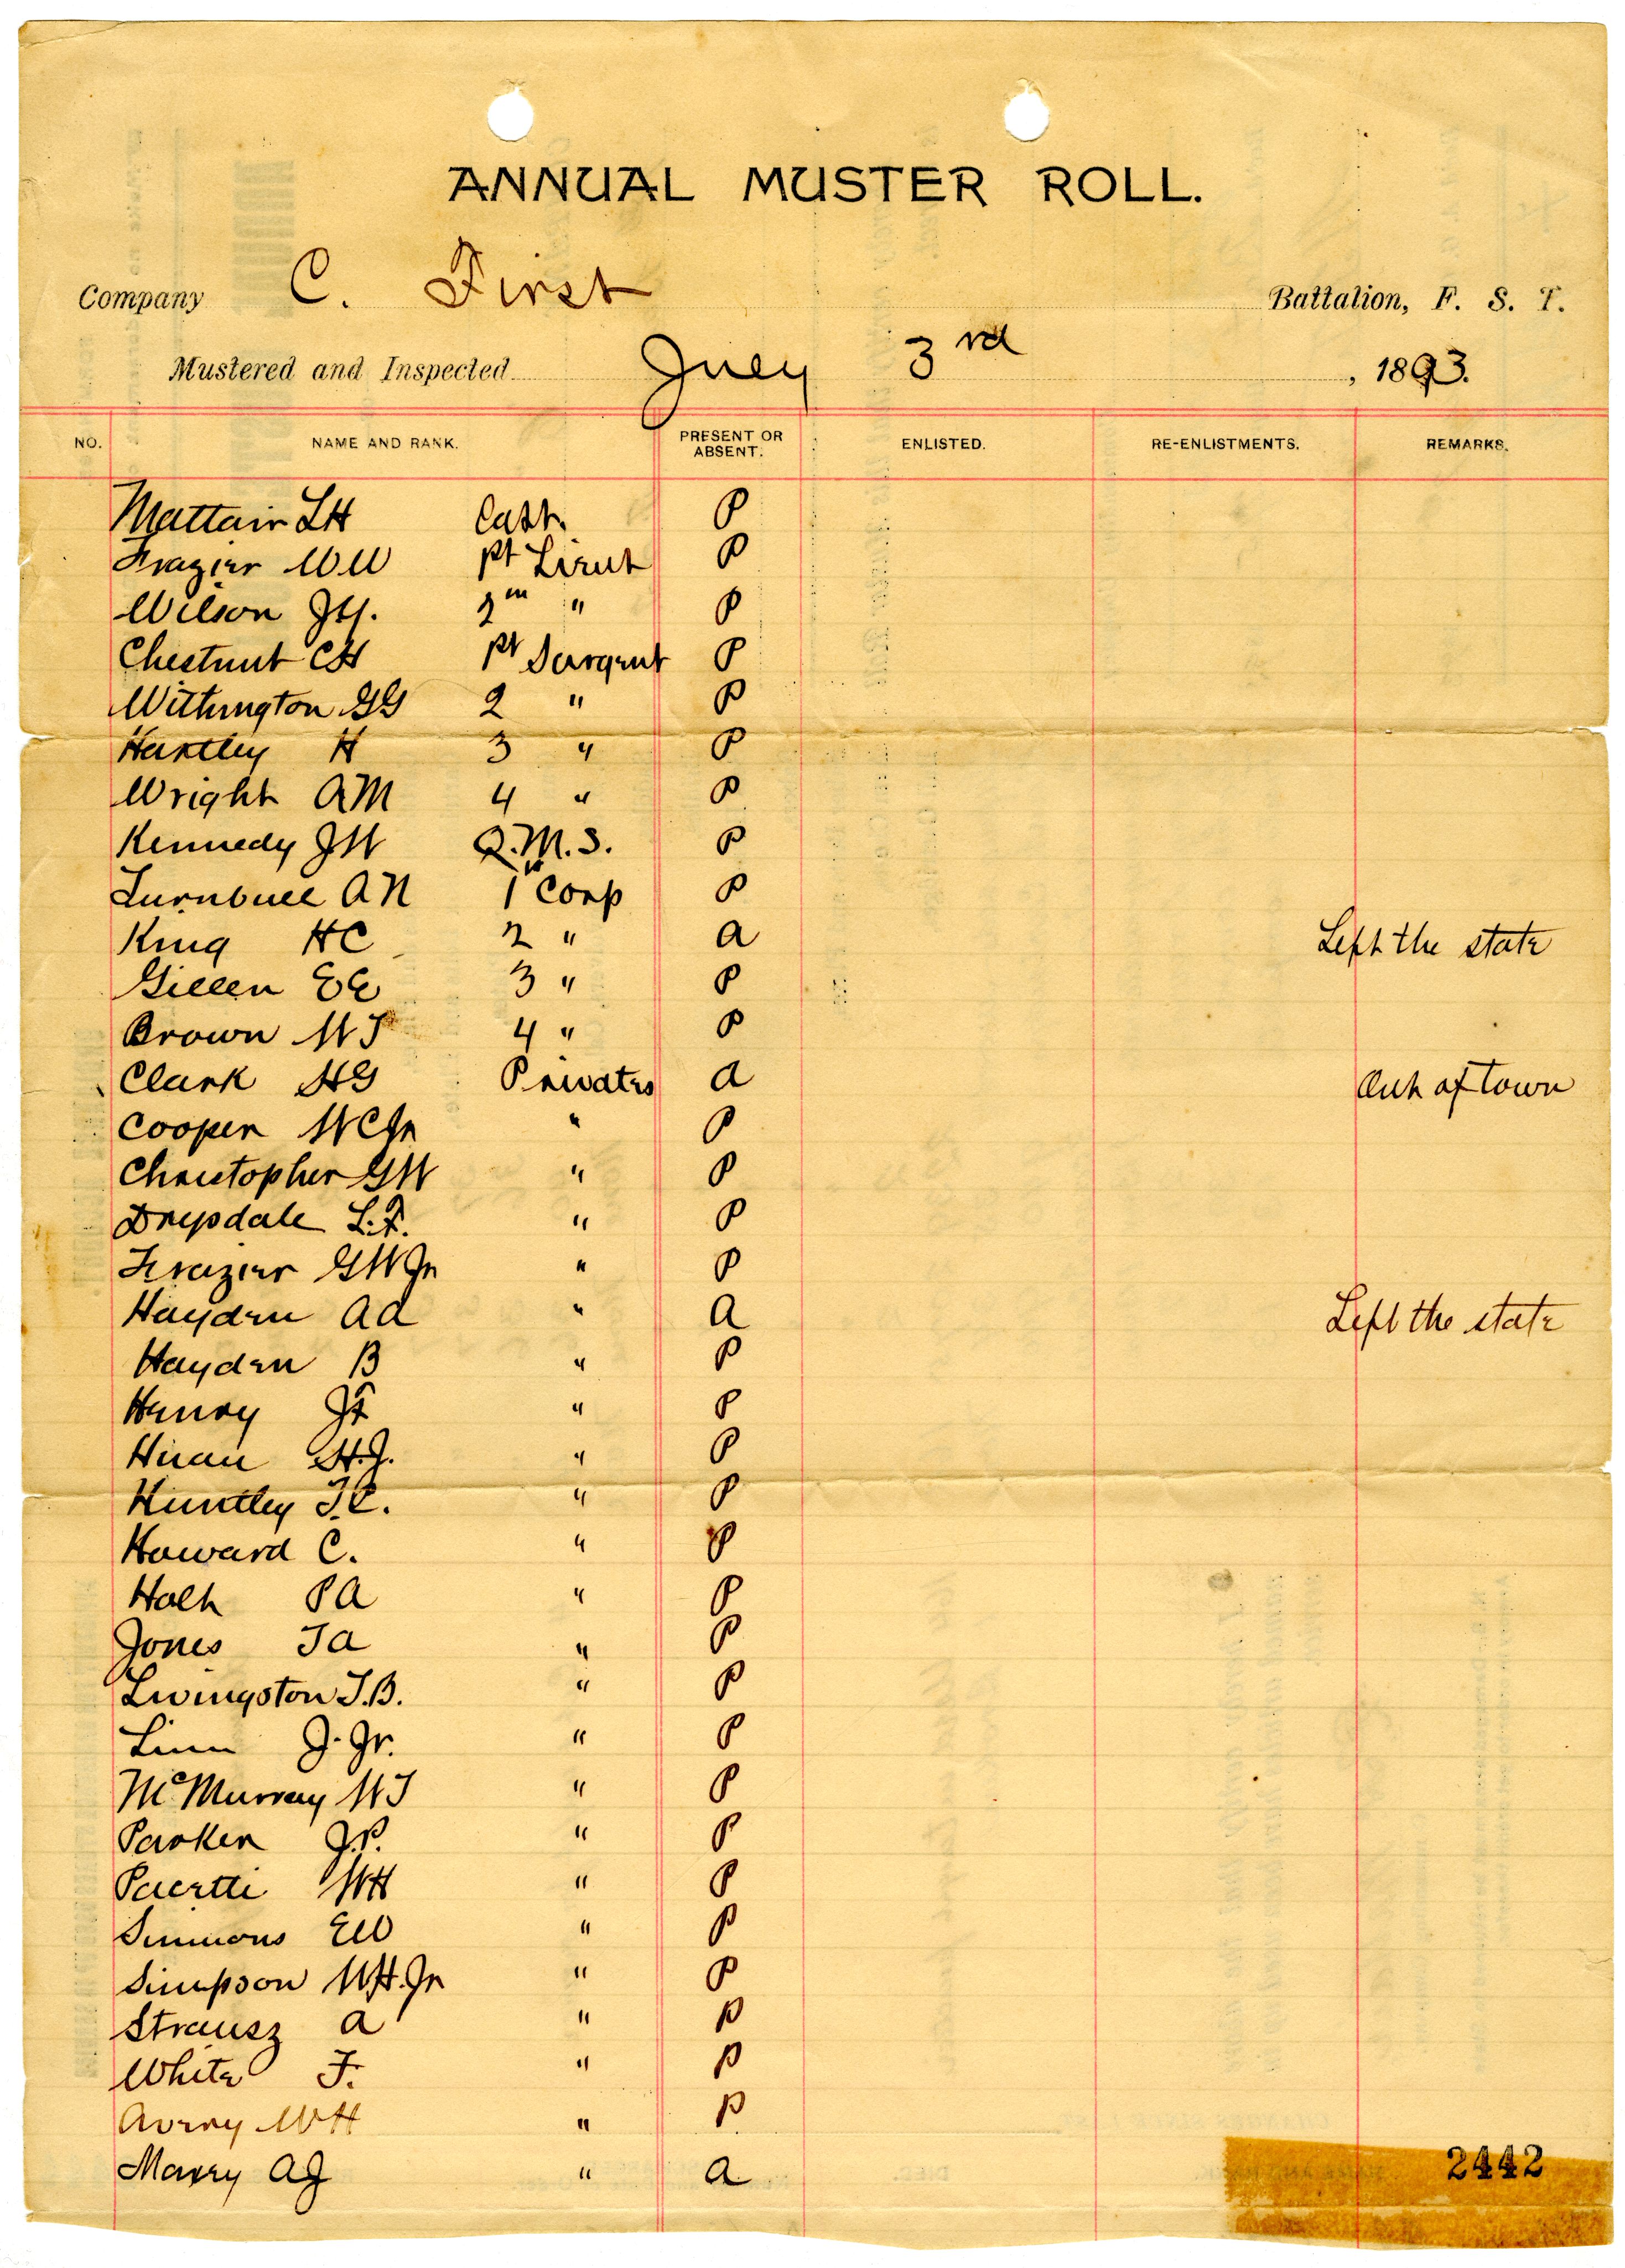 ANNUAL MUSTER ROLL.
Company C. First Battalion, F. S. T.
Mustered and Inspected July 3rd, 1893.
NO. NAME AND RANK. PRESENT OR ABSENT. ENLISTED. RE-ENLISTMENTS. REMARKS.
Mattair LH Capt. P
Frazier WW 1st Lieut P
Wilson JH. 2nd " P
Chestnut CH 1st Sargent P
Withington GG 2 " P
Hartley H 3 " P
Wright AM 4 " P
Kennedy JW Q.M.S. P
Turnbull AN 1st Corp P
King HC 2 " a Left the state
Gillen EE 3 " P
Brown WT 4 " P
Clark HG Privates a Out of town
Cooper WC Jr " P
Christopher GW " P
Drysdale L.F. " P
Frazier GW Jr " P
Hayden AA " a Left the state
Hayden B " P
Henry JF " P
H.J. " P
Huntley T.C. " P
Howard C. " P
Holt PA " P
Jones TA " P
Livingston T.B. " P
Linn J. Jr. " P
McMurray WT " P
Parker J.P. " P
WH " P
Simmons EW " P
Simpson WH. Jr " P
Strausz A " P
White F. " P
Avery WH " P
AJ " a
2442